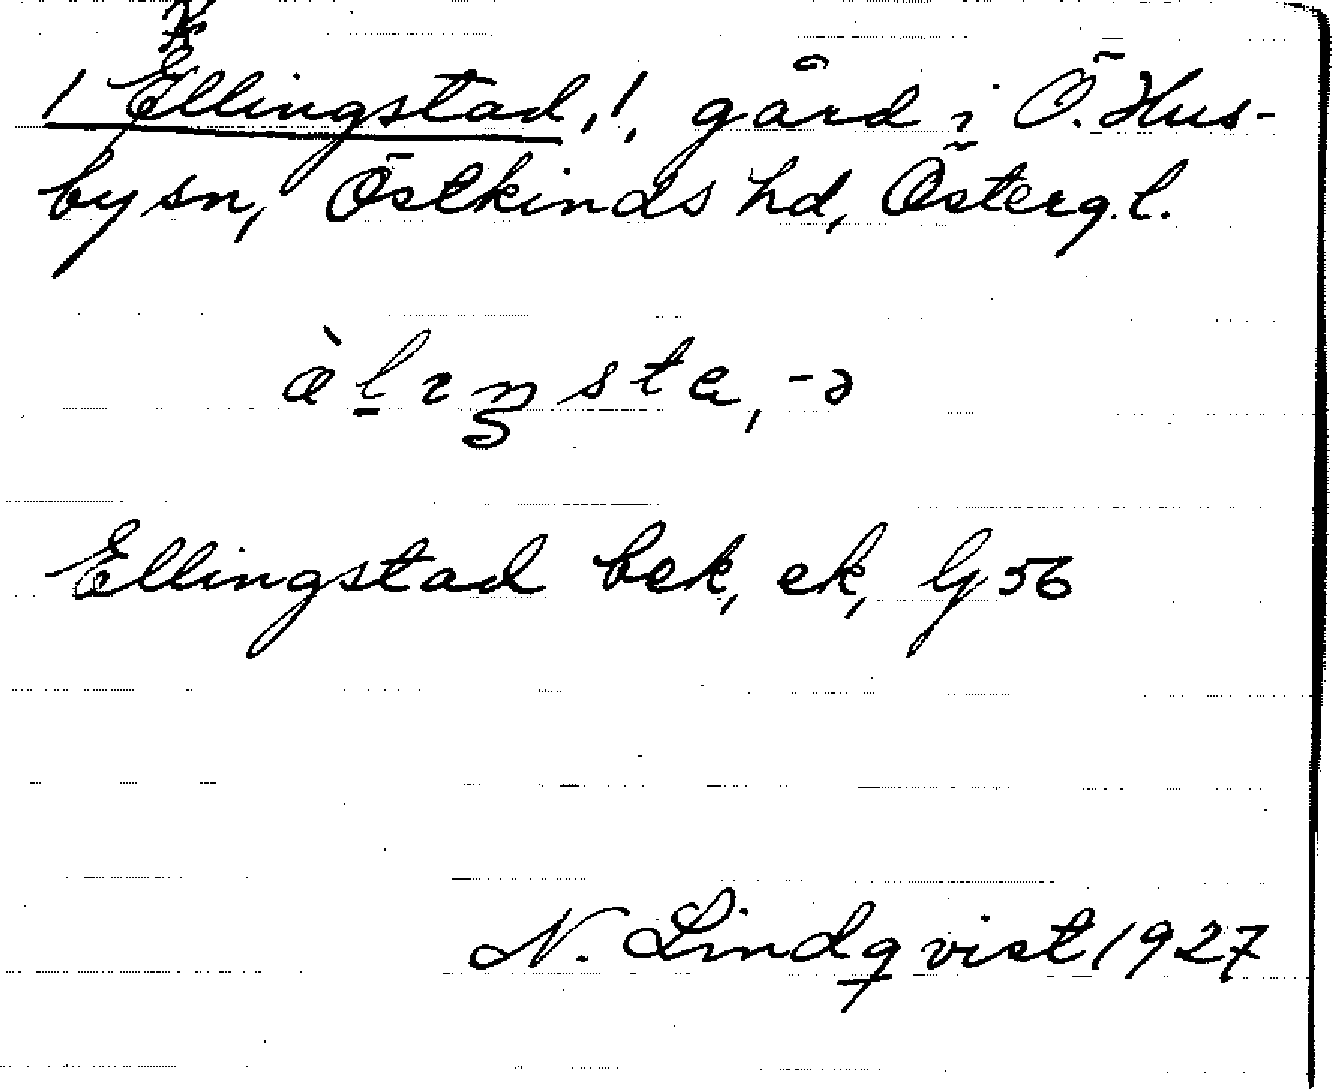 ! Ellingstad, !, gård i Ö. Hus-
by sn, Östkinds hd, Österg. l.
æ̀l̠ıŋsta, -ə
Ellingstad bek, ek, G 56
N. Lindqvist 1927